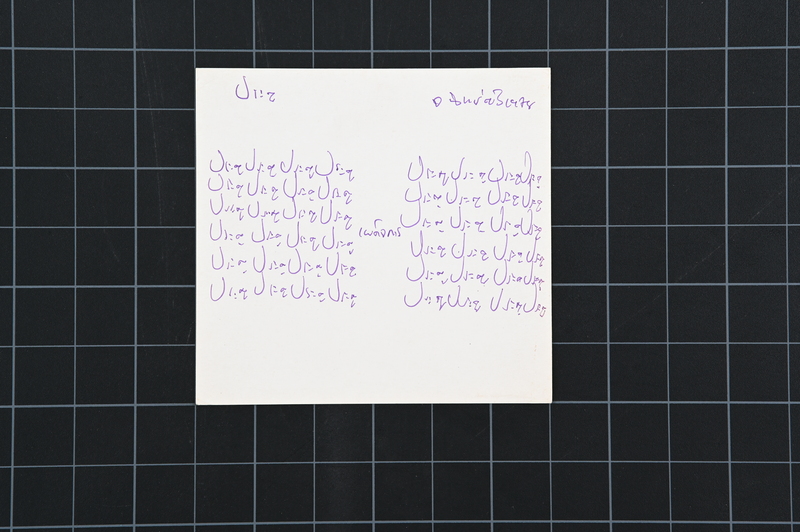 ประตู
ประตู ประตู ประตู ประตู ประตู ประตู ประตู ประตู
ประตู ประตู ประตู ประตู ประตู ประตู ประตู ประตู
ประตู ประตู ประตู ประตู ประตู ประตู ประตู ประตู
ประตู ประตู ประตู ประตู เผด็จการ ประตู ประตู ประตู ประตู
ประตู ประตู ประตู ประตู ประตู ประตู ประตู ประตู
ประตู ประตู ประตู ประตู ประตู ประตู ประตู ประตู